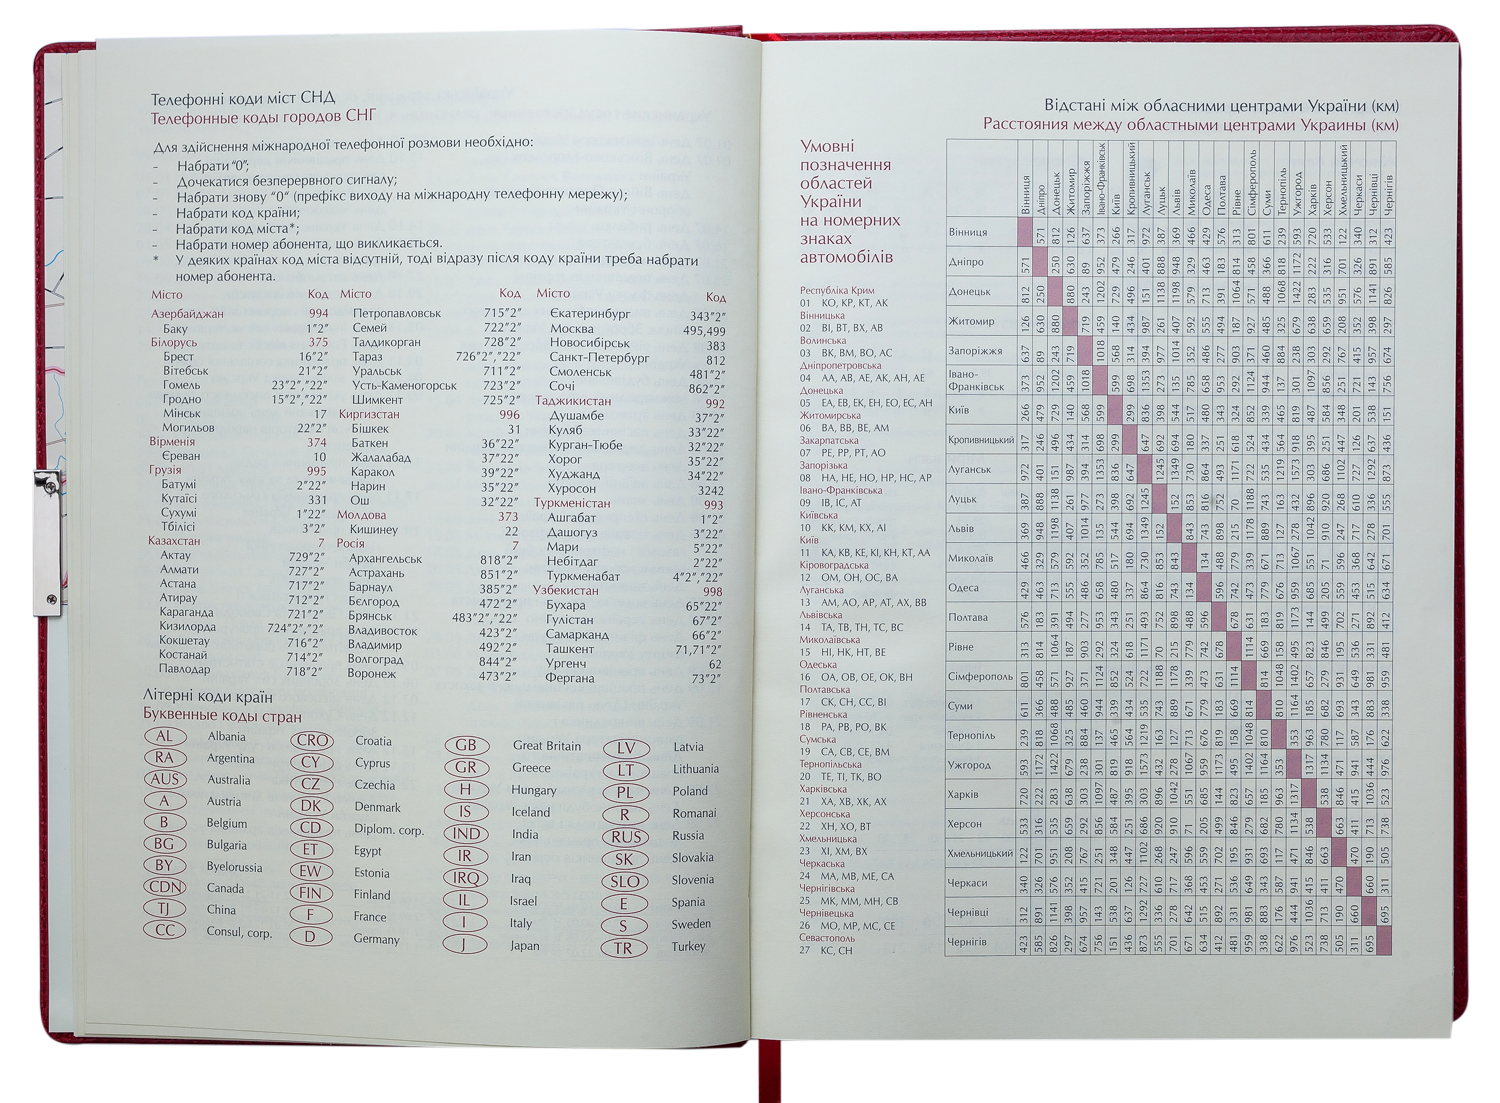 Телефонні коди міст СНД
Телефонные коды городов СНГ
Для здійснення міжнародної телефонної розмови необхідно:
- Набрати "0";
- Дочекатися безперервного сигналу;
- Набрати знову "0" (префікс виходу на міжнародну телефонну мережу);
- Набрати код країни;
- Набрати код міста*;
- Набрати номер абонента, що викликається.
* У деяких країнах код міста відсутній, тоді відразу після коду країни треба набрати
номер абонента.
Місто Код
Азербайджан 994
Баку 1"2"
Білорусь 375
Брест 16"2"
Вітебськ 21"2"
Гомель 23"2","22"
Гродно 15"2","22"
Мінськ 17
Могильов 22"2"
Вірменія 374
Єреван 10
Грузія 995
Батумі 2"22"
Кутаїсі 331
Сухумі 1"22"
Тбілісі 3"2"
Казахстан 7
Актау 729"2"
Алмати 727"2"
Астана 717"2"
Атирау 712"2"
Караганда 721"2"
Кизилорда 724"2","2"
Кокшетау 716"2"
Костанай 714"2"
Павлодар 718"2"
Місто Код
Петропавловськ 715"2"
Семей 722"2"
Талдикорган 728"2"
Тараз 726"2","22"
Уральськ 711"2"
Усть-Каменогорськ 723"2"
Шимкент 725"2"
Киргизстан 996
Бішкек 31
Баткен 36"22"
Жалалабад 37"22"
Каракол 39"22"
Нарин 35"22"
Ош 32"22"
Молдова 373
Кишинеу 22
Росія 7
Архангельськ 818"2"
Астрахань 851"2"
Барнаул 385"2"
Бєлгород 472"2"
Брянськ 483"2","22"
Владивосток 423"2"
Владимир 492"2"
Волгоград 844"2"
Воронеж 473"2"
Місто Код
Єкатеринбург 343"2"
Москва 495,499
Новосибірськ 383
Санкт-Петербург 812
Смоленськ 481"2"
Сочі 862"2"
Таджикистан 992
Душамбе 37"2"
Куляб 33"22"
Курган-Тюбе 32"22"
Хорог 35"22"
Худжанд 34"22"
Хуросон 3242
Туркменістан 993
Ашгабат 1"2"
Дашогуз 3"22"
Мари 5"22"
Небітдаг 2"22"
Туркменабат 4"2","22"
Узбекистан 998
Бухара 65"22"
Гулістан 67"2"
Самарканд 66"2"
Ташкент 71,71"2"
Ургенч 62
Фергана 73"2"
Літерні коди країн
Буквенные коды стран
AL Albania
RA Argentina
AUS Australia
A Austria
B Belgium
BG Bulgaria
BY Byelorussia
CDN Canada
TJ China
CC Consul, corp.
CRO Croatia
CY Cyprus
CZ Czechia
DK Denmark
CD Diplom. corp.
ET Egypt
EW Estonia
FIN Finland
F France
D Germany
GB Great Britain
GR Greece
H Hungary
IS Iceland
IND India
IR Iran
IRQ Iraq
IL Israel
I Italy
J Japan
LV Latvia
LT Lithuania
PL Poland
R Romanai
RUS Russia
SK Slovakia
SLO Slovenia
E Spania
S Sweden
TR Turkey
Відстані між обласними центрами України (км)
Расстояния между областными центрами Украины (км)
Умовні
позначення
областей
України
на номерних
знаках
автомобілів
Республіка Крим
01 КО, КР, КТ, АК
Вінницька
02 ВІ, ВТ, ВХ, АВ
Волинська
03 ВК, ВМ, ВО, АС
Дніпропетровська
04 АА, АВ, АЕ, АК, АН, АЕ
Донецька
05 ЕА, ЕВ, ЕК, ЕН, ЕО, ЕС, АН
Житомирська
06 ВА, ВВ, ВЕ, АМ
Закарпатська
07 РЕ, РР, РТ, АО
Запорізька
08 НА, НЕ, НО, НР, НС, АР
Івано-Франківська
09 ІВ, ІС, АТ
Київська
10 КК, КМ, КХ, АІ
Київ
11 КА, КВ, КЕ, КІ, КН, КТ, АА
Кіровоградська
12 ОМ, ОН, ОС, ВА
Луганська
13 АМ, АО, АР, АТ, АХ, ВВ
Львівська
14 ТА, ТВ, ТН, ТС, ВС
Миколаївська
15 НІ, НК, НТ, ВЕ
Одеська
16 ОА, ОВ, ОЕ, ОК, ВН
Полтавська
17 СК, СН, СС, ВІ
Рівненська
18 РА, РВ, РО, ВК
Сумська
19 СА, СВ, СЕ, ВМ
Тернопільська
20 ТЕ, ТІ, ТК, ВО
Харківська
21 ХА, ХВ, ХК, АХ
Херсонська
22 ХН, ХО, ВТ
Хмельницька
23 ХІ, ХМ, ВХ
Черкаська
24 МА, МВ, МЕ, СА
Чернігівська
25 МК, ММ, МН, СВ
Чернівецька
26 МО, МР, МС, СЕ
Севастополь
27 КС, СН
Вінниця Дніпро Донецьк Житомир Запоріжжя Івано-Франківськ Київ Кропивницький Луганськ Луцьк Львів Миколаїв Одеса Полтава Рівне Сімферополь Суми Тернопіль Ужгород Харків Херсон Хмельницький Черкаси Чернівці Чернігів
Вінниця 571 812 126 637 373 266 317 972 387 369 466 429 576 313 801 611 239 593 720 533 122 340 312 423
Дніпро 571 250 630 89 952 479 246 401 888 948 329 463 183 814 458 366 818 1172 222 316 701 326 891 585
Донецьк 812 250 880 243 1202 729 496 151 1138 1198 579 713 391 1064 571 488 1068 1422 283 535 951 576 1141 826
Житомир 126 630 880 719 459 140 434 987 261 407 592 555 494 187 927 485 325 679 638 659 208 352 398 297
Запоріжжя 637 89 243 719 1018 568 314 394 977 1014 352 486 277 903 371 460 884 238 303 292 767 415 957 674
Івано-
Франківськ 373 952 1202 459 1018 599 698 1353 273 135 785 658 953 292 1124 944 137 301 1097 856 251 721 143 756
Київ 266 479 729 140 568 599 299 836 398 544 517 480 343 324 852 339 465 819 487 584 348 201 538 151
Кропивницький 317 246 496 434 314 698 299 647 692 694 180 337 251 618 524 434 564 918 395 251 447 126 637 436
Луганськ 972 401 151 987 394 1353 836 647 1245 1349 730 864 493 1171 722 535 1219 1573 303 686 1102 727 1292 873
Луцьк 387 888 1138 261 977 273 398 692 1245 152 853 816 752 70 1188 743 163 432 896 920 268 610 336 555
Львів 369 948 1198 407 1014 135 544 694 1349 152 843 743 898 215 1178 889 127 278 1042 910 247 717 278 701
Миколаїв 466 329 579 592 352 785 517 180 730 853 843 134 488 779 339 671 713 1067 551 71 596 368 642 671
Одеса 429 463 713 555 486 658 480 337 864 816 743 134 596 742 473 779 676 959 685 205 559 453 515 634
Полтава 576 183 391 494 277 953 343 251 493 752 898 488 596 678 631 183 819 1173 144 499 702 271 892 412
Рівне 313 814 1064 187 903 292 324 618 1171 70 215 779 742 678 1114 669 158 495 823 846 195 536 331 481
Сімферополь 801 458 571 927 371 1124 852 524 722 1188 1178 339 473 631 1114 814 1048 1402 657 279 931 649 981 959
Суми 611 366 488 485 460 944 339 434 535 743 889 671 779 183 669 814 810 1164 185 682 693 343 883 338
Тернопіль 239 818 1068 325 884 137 465 564 1219 163 127 713 676 819 158 1048 810 353 963 780 117 587 176 622
Ужгород 593 1172 1422 679 238 301 819 918 1573 432 278 1067 959 1173 495 1402 1164 353 1317 1134 471 941 444 976
Харків 720 222 283 638 303 1097 487 395 303 896 1042 551 685 144 823 657 185 963 1317 538 846 415 1036 523
Херсон 533 316 535 659 292 856 584 251 686 920 910 71 205 499 846 279 682 780 1134 538 663 411 713 738
Хмельницький 122 701 951 208 767 251 348 447 1102 268 247 596 559 702 195 931 693 117 471 846 663 470 190 505
Черкаси 340 326 576 352 415 721 201 126 727 610 717 368 453 271 536 649 343 587 941 415 411 470 660 311
Чернівці 312 891 1141 398 957 143 538 637 1292 336 278 642 515 892 331 981 883 176 444 1036 713 190 660 695
Чернігів 423 585 826 297 674 756 151 436 873 555 701 671 634 412 481 959 338 622 976 523 738 505 311 695